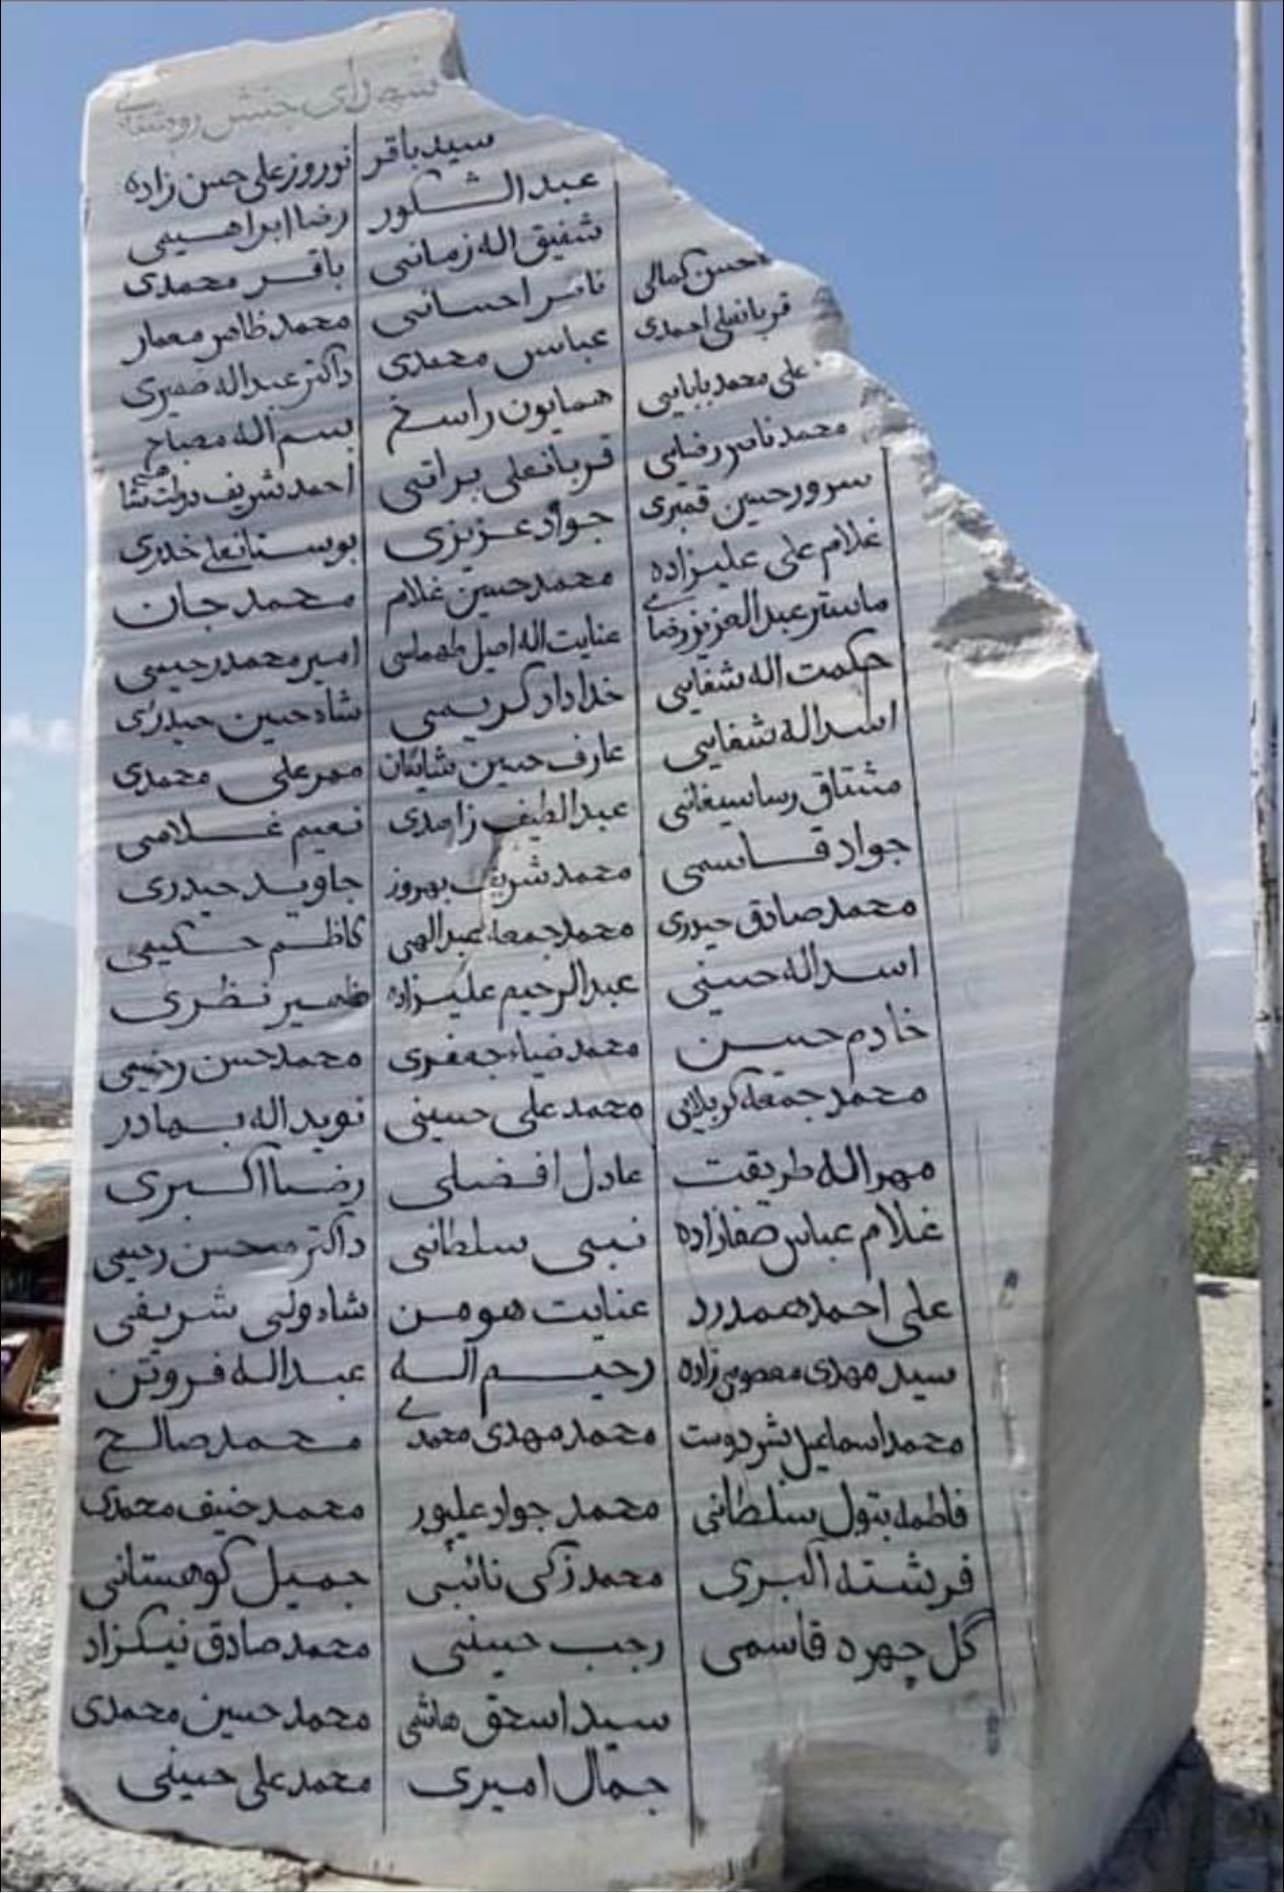 شهدای جنبش روشنایی
محسن کمالی
قربانعلی احمدی
علی محمد بابایی
محمد ناصر رضایی
سرور حسین قمبری
غلام علی علیزاده
ماستر عبدالعزیز رضایی
حکمت اله شفایی
اسداله شفایی
مشتاق رسا سیغانی
جواد قاسمی
محمد صادق حیدری
اسداله حسینی
خادم حسین
محمد جمعه کربلایی
مهراله طریقت
غلام عباس صفازاده
علی احمد همدرد
سید مهدی معصومی زاده
محمد اسماعیل بشردوست
فاطمه بتول سلطانی
فرشته اکبری
گل چهره قاسمی
سید باقر
عبدالشکور
شفیق اله زمانی
ناصر احسانی
عباس محمدی
همایون راسخ
قربانعلی براتی
جواد عزیزی
محمد حسین غلام
عنایت اله اصیل طهماسی
خداداد کریمی
عارف حسین شایگان
عبدالطیف زاهدی
محمد شریف بهروز
محمد جمعه عبدالهی
عبدالرحیم علیزاده
محمد ضیاء جعفری
محمد علی حسینی
عادل افضلی
نبی سلطانی
عنایت هومن
رحیم اله
محمد مهدی محمدی
محمد جواد علیپور
محمد زکی نائبی
رجب حسینی
سید اسحق هاشمی
جمال امیری
نوروز علی حسن زاده
رضا ابراهیمی
باقر محمدی
محمد ظاهر معمار
داکتر عبداله ضمیری
بسم اله مصباح
احمد شریف دولت شاهی
بوستانعلی خدری
محمد جان
امیر محمد رحیمی
شاه حسین حیدری
مهر علی محمدی
نعیم غلامی
جاوید حیدری
کاظم حکیمی
ضمیر نظری
محمد حسن رحیمی
نوید اله بهادر
رضا اکبری
داکتر محسن رحیمی
شاه ولی شریفی
عبداله فروتن
محمد صالح
محمد حنیف محمدی
جمیل کوهستانی
محمد صادق نیکزاد
محمد حسین محمدی
محمد علی حسینی